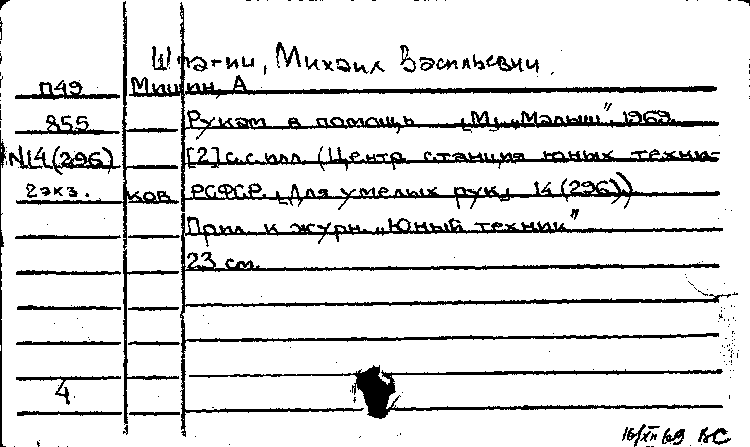 Шпагин, Михаил Васильевич.
П49 Мишин, А.
855 Рукам в помощь. [М], „Малыш", 1969.
N14(296) [2]с.с илл. (Центр. станция юных техни-
2экз. ков РСФСР. [Для умелых рук] 14(296))
Прил. к журн. „Юный техник"
23 см.
4
16/XII 69 ВС